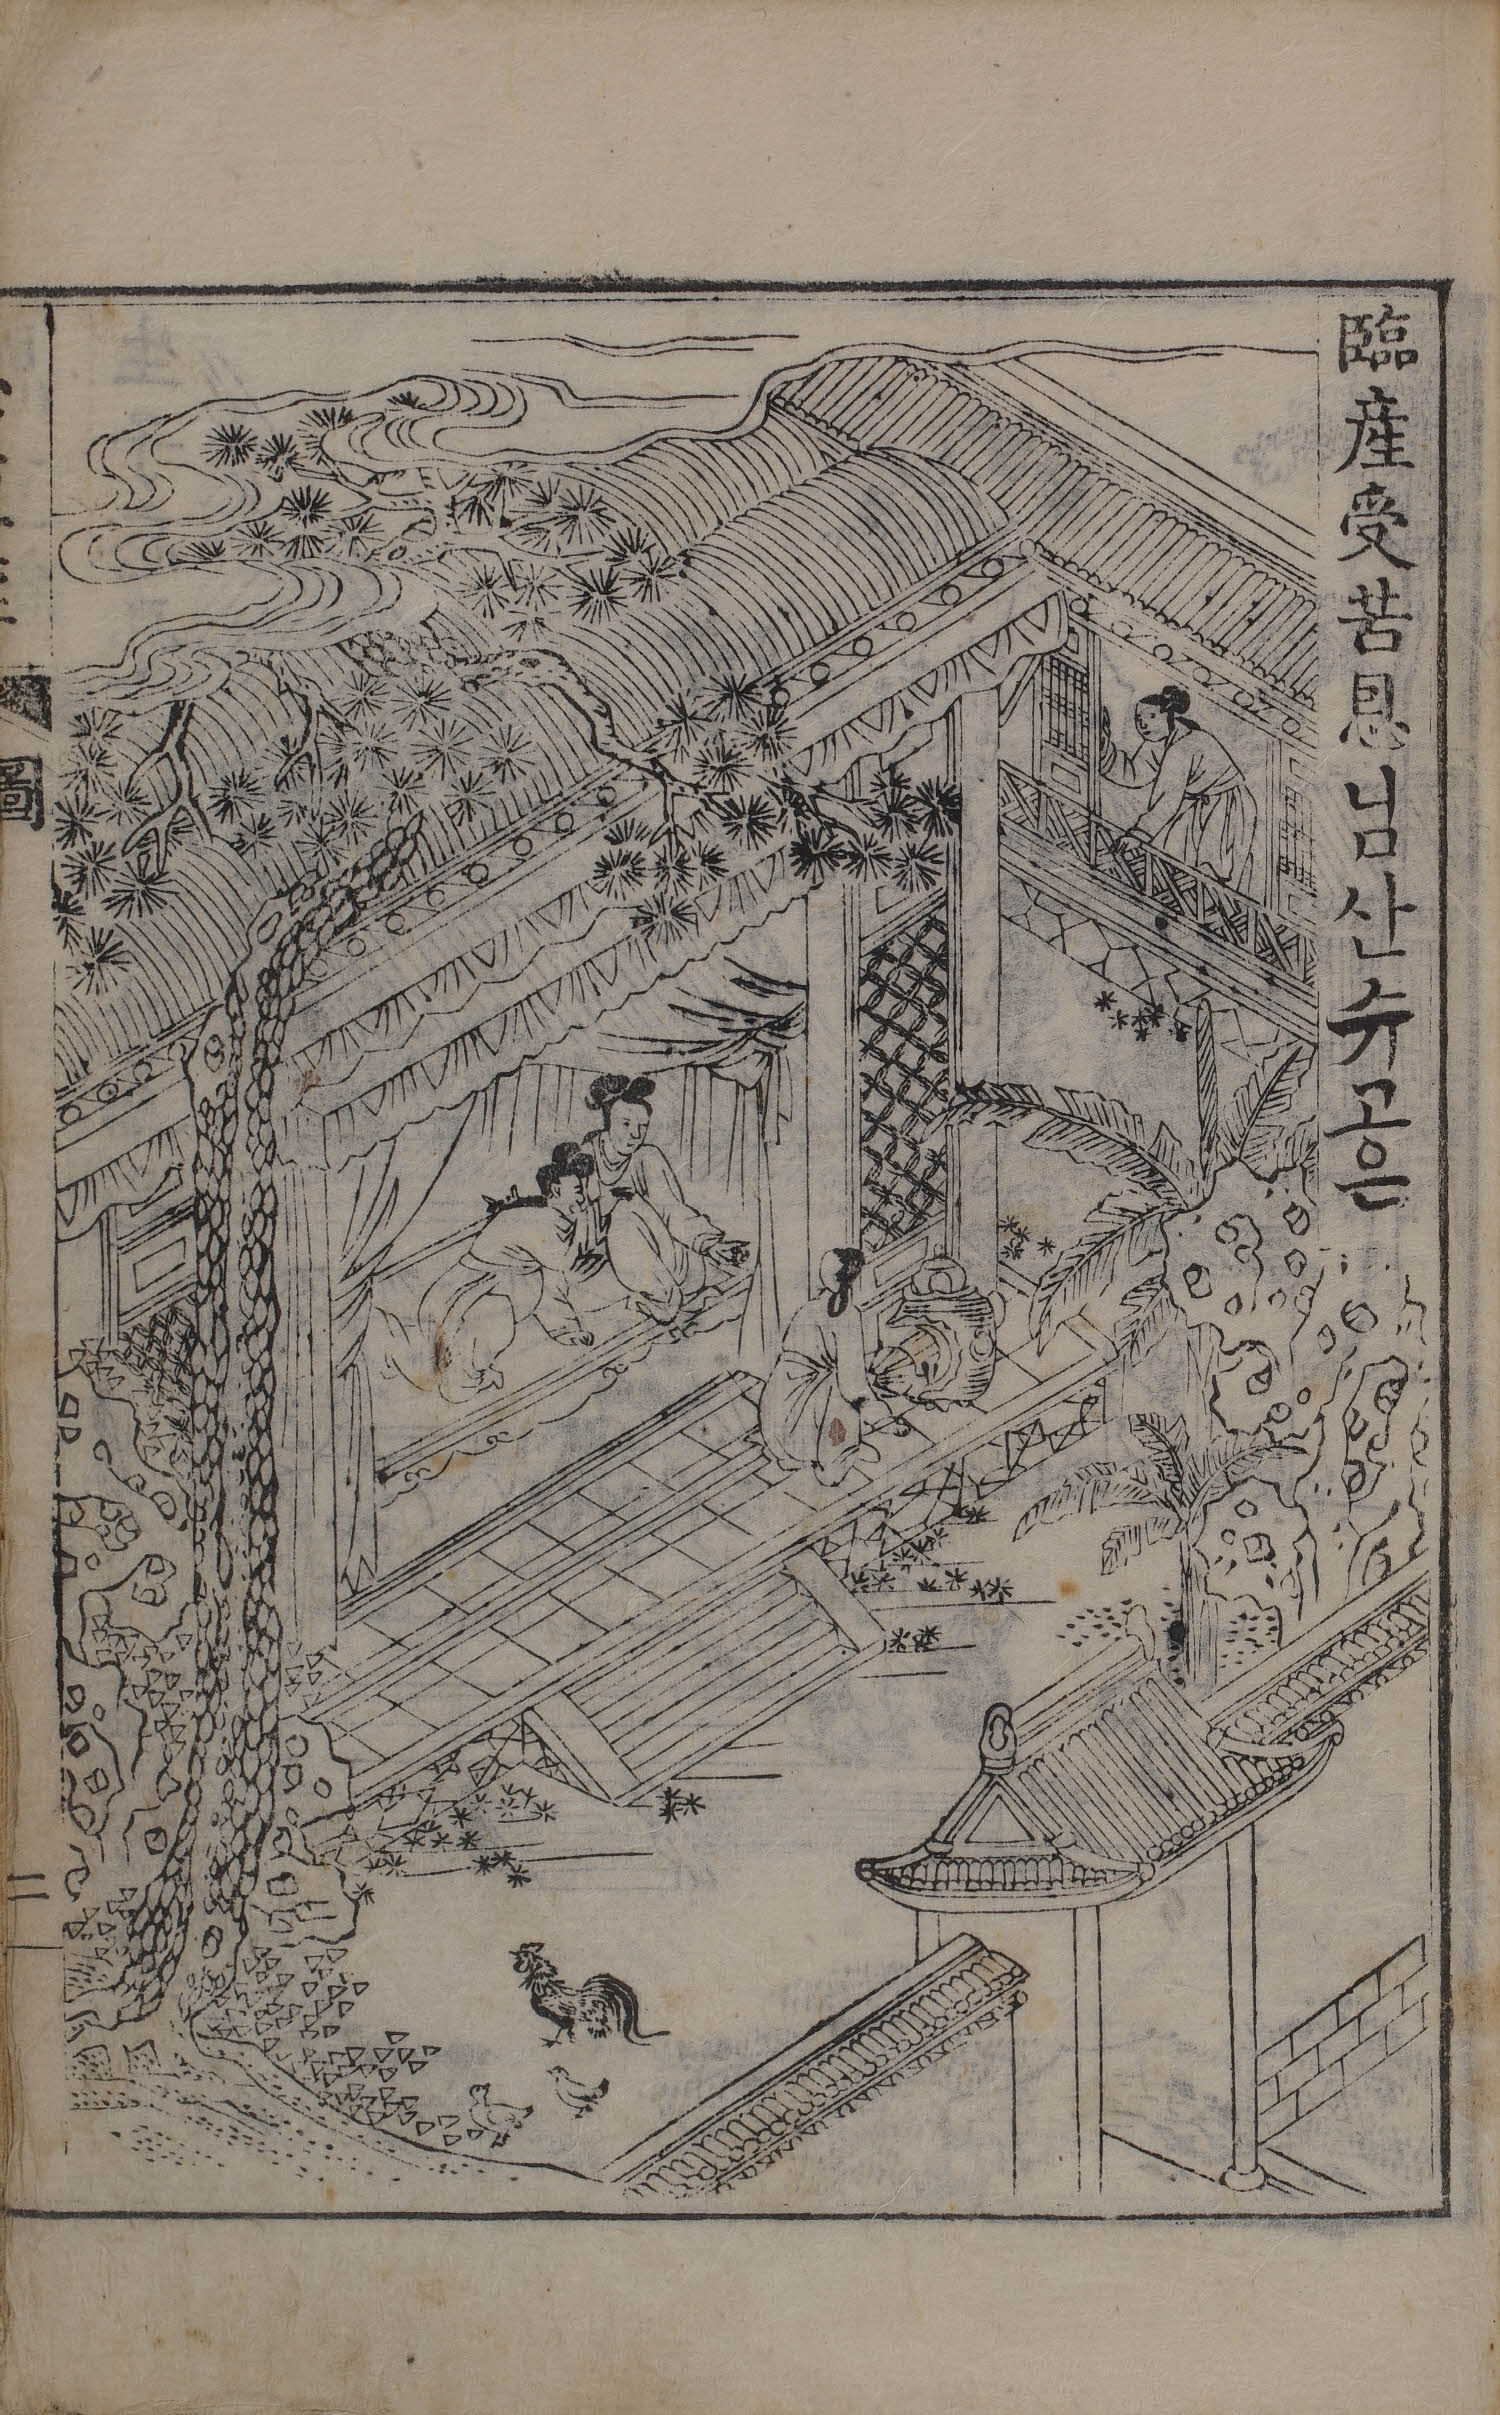 臨産受苦恩님산슈고은
圖
二